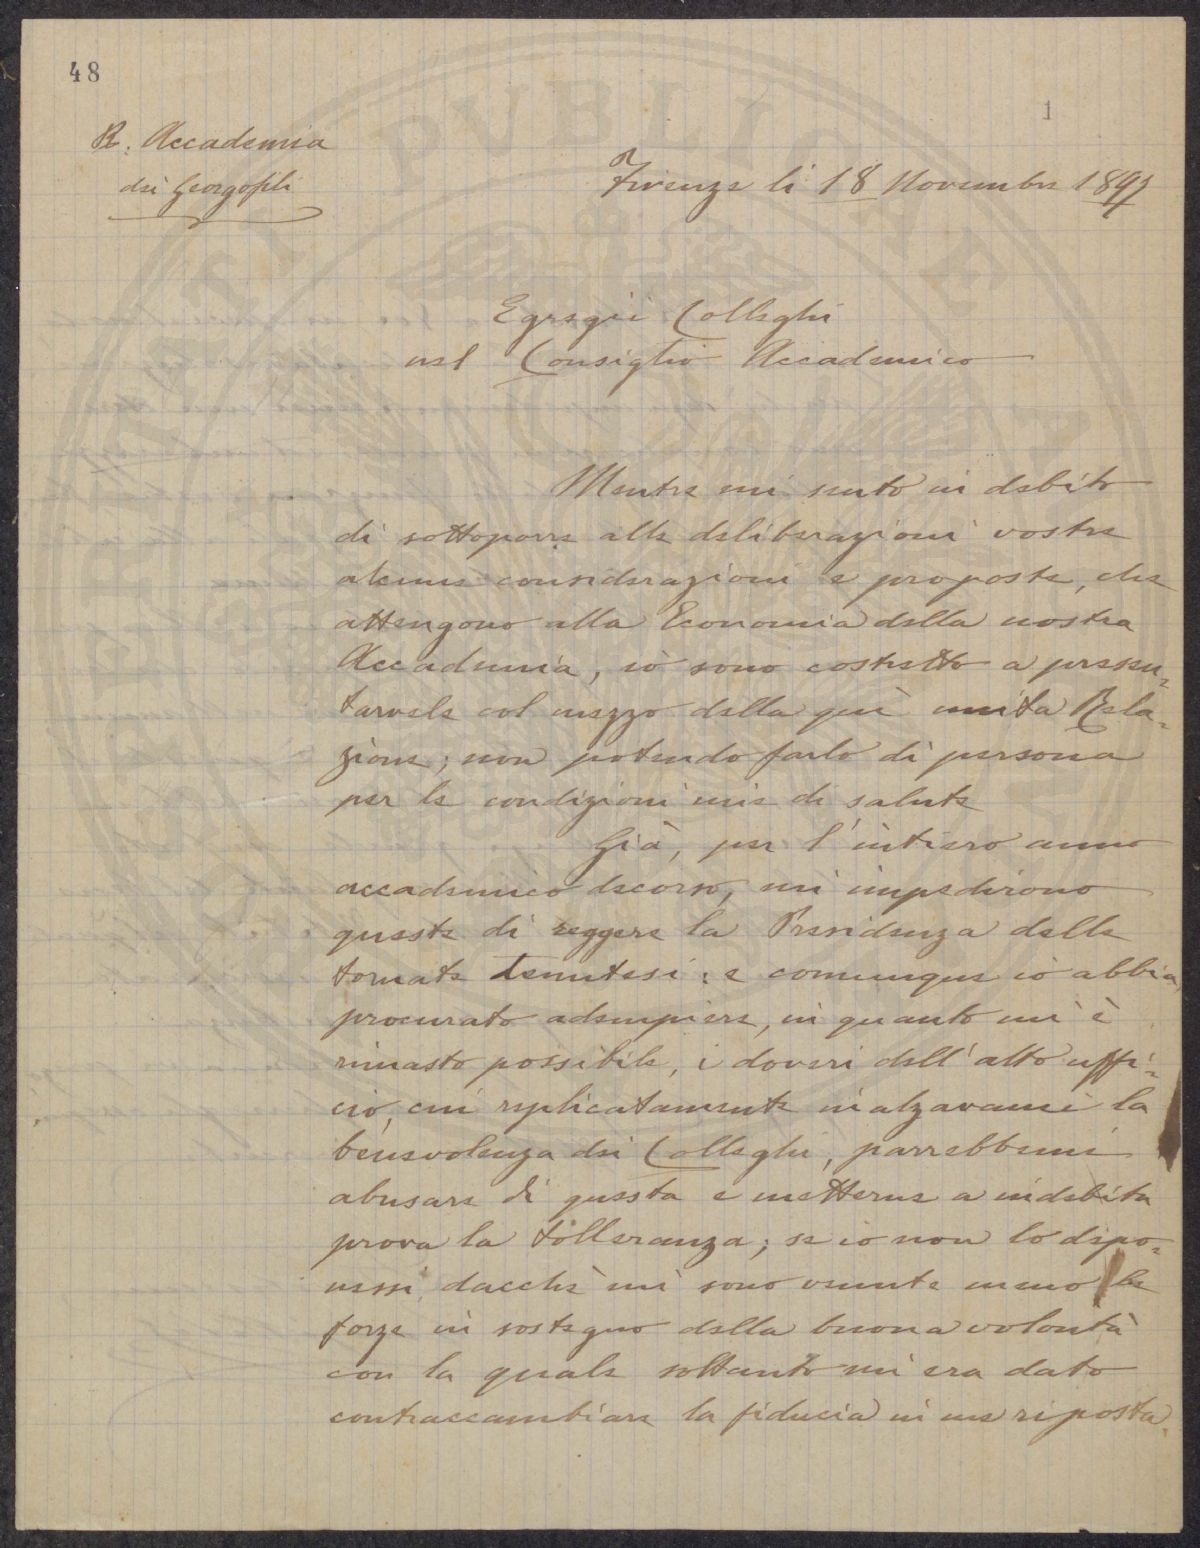 48
1
R. Accademia
dei Georgofili
Firenze li 18 Novembre 1897
Egregii Colleghi
nel Consiglio Accademico
Mentre mi sento in debito
di sottoporre alle deliberazioni vostre
alcune considerazioni e proposte, che
attengono alla Economia della nostra
Accademia, iò sono costretto a presen=
tarvele col mezzo della quì unita Rela=
zione; non potendo farlo di persona
per le condizioni mie di salute
Già, per l'intiero anno
accademico decorso, mi impedirono
queste di reggere la Presidenza delle
tornate tenutesi: e comunque iò abbia
procurato adempiere, in quanto mi è
rimasto possibile, i doveri dell'alto uffi=
cio, cui replicatamente inalzavami la
benevolenza dei Colleghi, parrebbemi
abusare di questa e metterne a indebita
prova la tolleranza; se io non lo dipo=
nessi, dacchè mi sono venute meno le
forze in sostegno della buona volontà
con la quale soltanto mi era dato
contraccambiare la fiducia in me riposta.